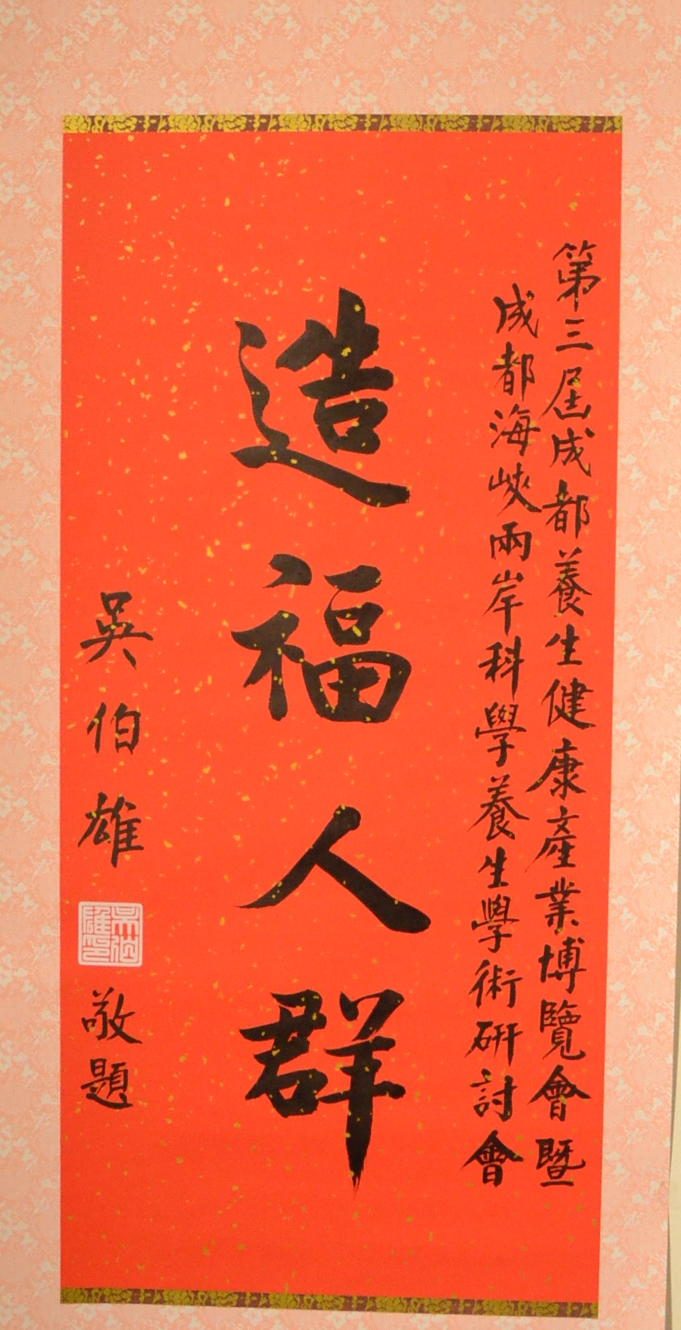 第三屆成都養生健康產業博覽會暨
成都海峽兩岸科學養生學術研討會
造福人群
吳伯雄
吳伯雄印
敬題